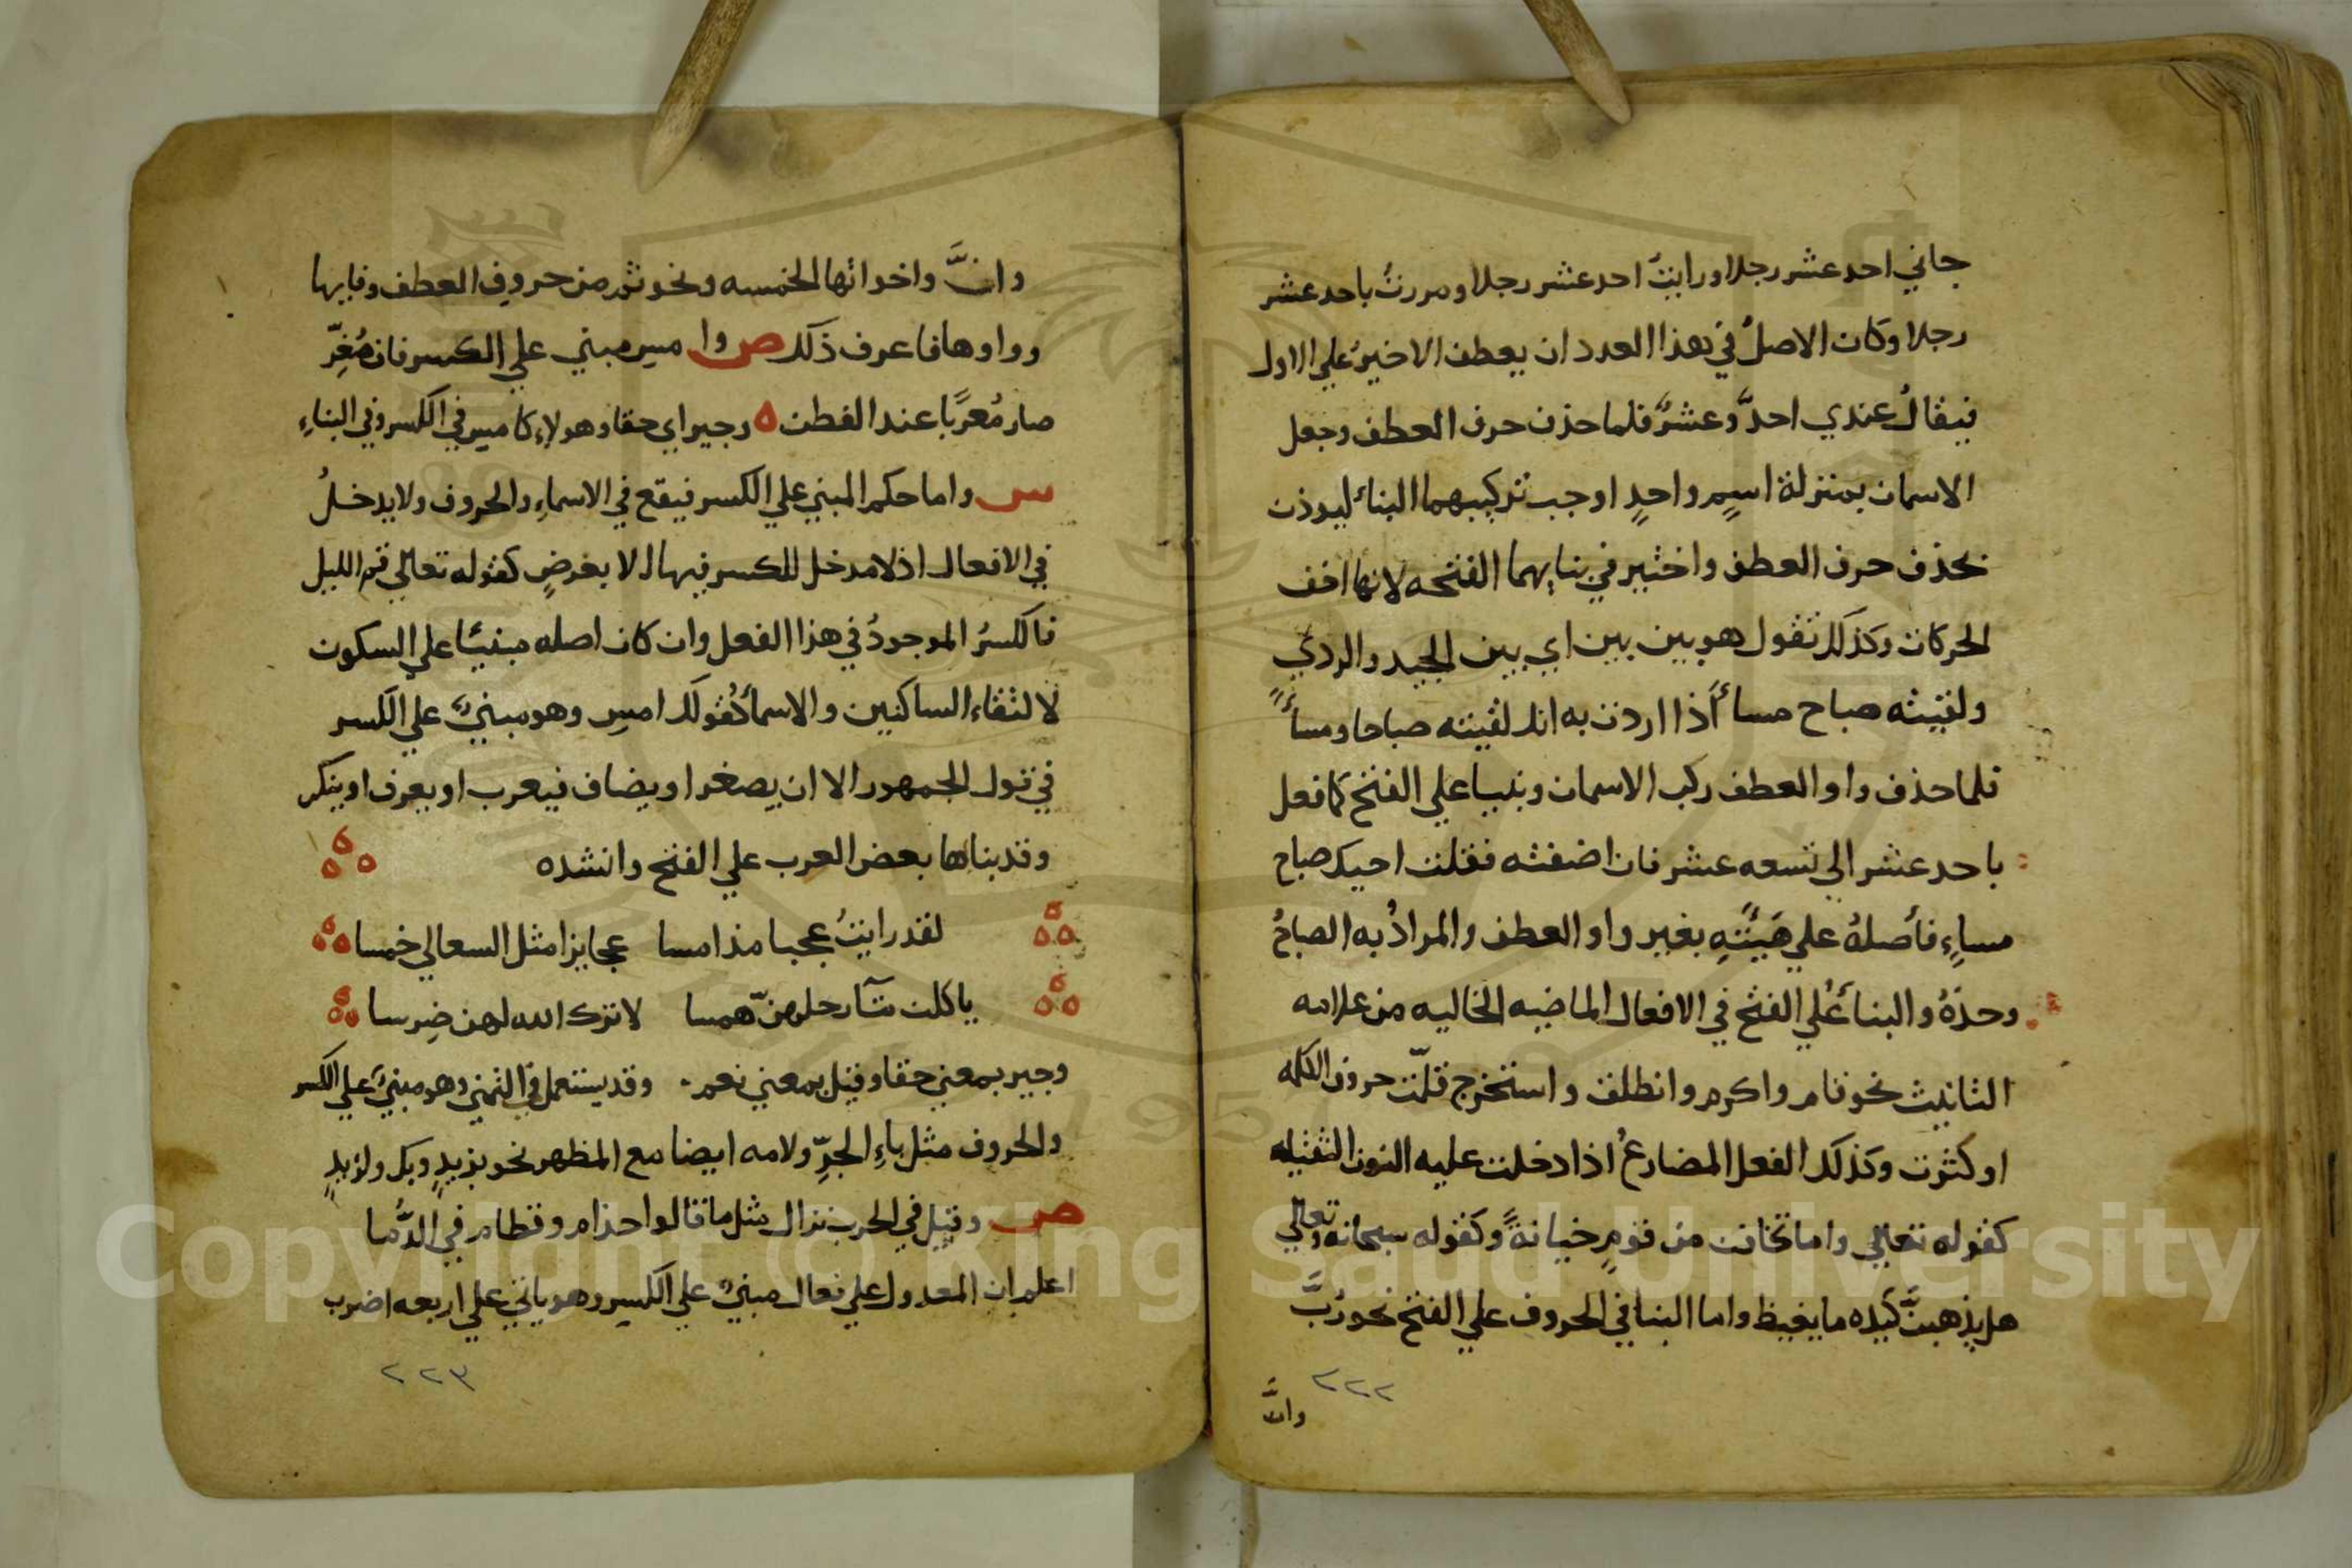 جاني احد عشر رجلا ورايتُ احد عشر رجلا ومررتُ باحد عشر
رجلا وكان الاصلُ في هذا العدد ان يعطف الاخيرُ علي الاول
فيقالُ عندي احدٌ وعشرٌ فلما حذف حرف العطف وجعل
الاسمان بمنزلة اسمٍ واحدٍ اوجب تركيبهما البناء ليوذن
بحذف حرف العطف واختير في بنايهما الفتحه لانها اخف
الحركات وكذلك تقول هو بين بين اي بين الجيد والردي
ولقيته صباح مساءً اذا اردت به انك لقيته صباحا ومساءً
فلما حذف واو العطف ركب الاسمان وبنيا علي الفتح كما فعل
باحد عشر الي تسعه عشر فان اضفته فقلت احيك صباح
مساءٍ فأصلهُ علي هَيئتِهِ بغير واو العطف والمرادُ به الصباحُ
وحدَهُ والبناءُ علي الفتح في الافعال الماضيه الخاليه من علامه
التانيث نحو قام واكرم وانطلق واستخرج قلّت حروف الكلمه
او كثرت وكذلك الفعل المضارعُ اذا دخلت عليه النون الثقيله
كقوله تعالي واما تخافن من قومٍ خيانةً وكقوله سبحانه وتعالي
هل يذهبنَّ كيده ما يغيظ واما البنا في الحروف علي الفتح نحو رُبَّ
٢٢٢
وانَّ
وانَّ واخواتها الخمسه ونحو ثم من حروف العطف وفايها
وواوها فاعرف ذلك ص وامس مبني علي الكسر فان صُغِّر
صار مُعرَبا عند الفطن ه وجير اي حقا وهولاء كامس في الكسر وفي البناءِ
س واما حكم المبني علي الكسر فيقع في الاسماءِ والحروف ولا يدخلُ
في الافعال اذ لا مدخل للكسر فيها الا بعرضٍ كقوله تعالي قم الليل
فالكسرُ الموجودُ في هذا الفعل وان كان اصله مبنيًا علي السكون
لالتقاء الساكنين والاسماء كقولك امسِ وهو مبنيٌ علي الكسر
في قول الجمهور الا ان يصغر او يضاف فيعرب او يعرف او ينكر
وقد بناها بعض العرب علي الفتح وانشده
لقد رايتُ عجبا مذ امسا عجايزا مثل السعالي خمسا
ياكلن رحلهنّ همسا لا ترك الله لهن ضِرسا
وجير بمعني حقا وقيل بمعني نعم وقد يستعمل في وهو مبنيٌ علي الكسر
والحروف مثل باءِ الجرِّ ولامه ايضا مع المظهر نحو بزيدٍ وبك ولزيدٍ
ص وقيل في الحرب نزال مثل ما قالوا حذام وقطام في الدُّما
اعلم ان المعدول علي فعال مبنيٌ علي الكسر وهو ياتي علي اربعه اضرب
٢٢٣
Copyright © King Saud University
1957